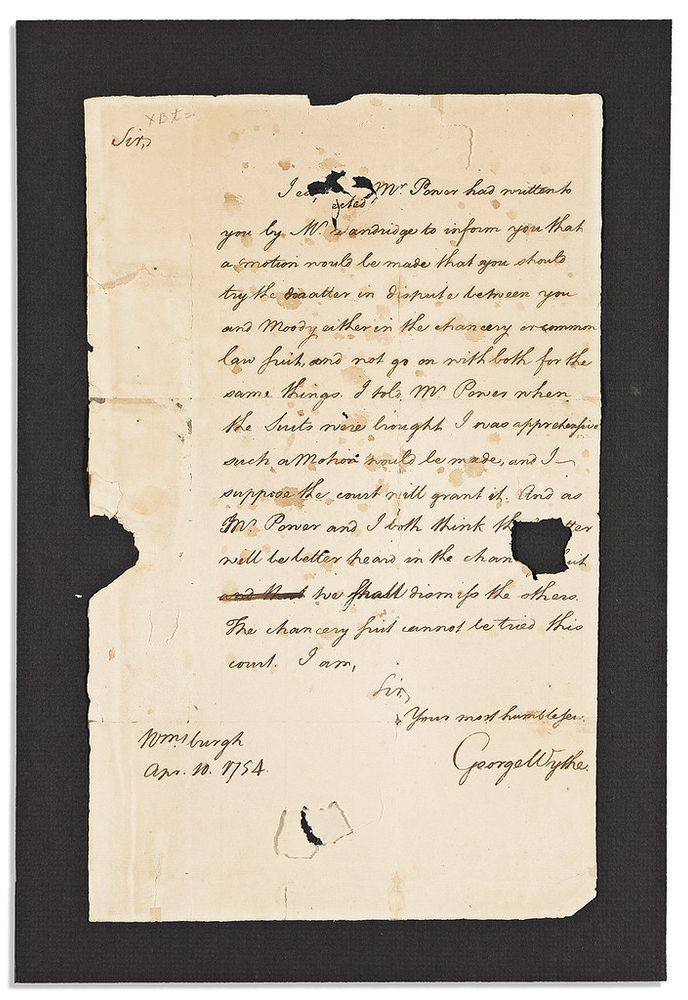 Sir,
I Mr. Power had written to
you by Mr. andridge to inform you that
a motion would be made that you should
try the matter in dispute between you
and Moody either in the chancery or common
law suit, and not go on with both for the
same things. I told Mr. Power when
the suits were brought I was apprehensive
such a Motion would be made, and I
suppose the court will grant it. And as
Mr. Power and I both think the
will be better heard in the chan
we shall dismiss the others.
The chancery suit cannot be tried this
court. I am,
Sir,
Your most humble ser.
Wmsburgh
George Wythe.
Apr. 10. 1754.